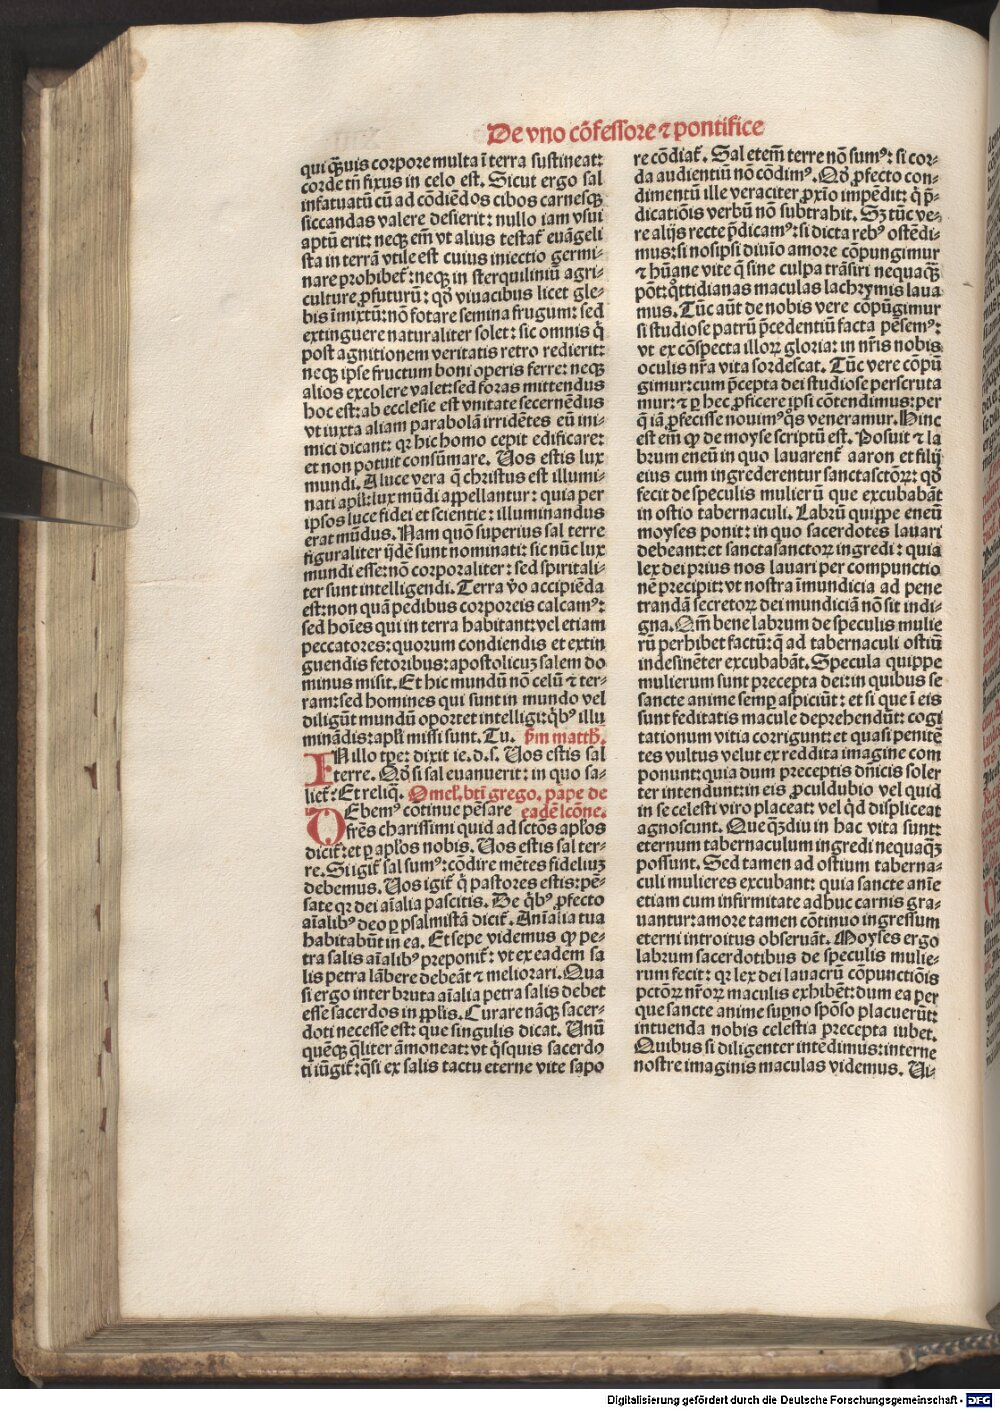 De vno cōfessore ⁊ pontifice
qui q̄uis corpore multa ī terra sustineat:
corde tn̄ fixus in celo est. Sicut ergo sal
infatuatū cū ad cōdiēdos cibos carnesqꝫ
siccandas valere desierit: nullo iam vsui
aptū erit: neqꝫ em̄ vt alius testat᷑ euāgeli
sta in terrā vtile est cuius iniectio germi-
nare prohibet᷑: neqꝫ in sterquiliniū agri-
culture ꝓfuturū: qđ viuacibus licet gle-
bis īmixtū: nō fotare semina frugum: sed
extinguere naturaliter solet: sic omnis q̇
post agnitionem veritatis retro redierit:
neqꝫ ipse fructum boni operis ferre: neqꝫ
alios excolere valet: sed foras mittendus
hoc est: ab ecclesie est vnitate secernēdus
vt iuxta aliam parabolā irridētes eū ini-
mici dicant: qꝛ hic homo cepit edificare:
et non potuit consūmare. Uos estis lux
mundi. A luce vera q̄ christus est illumi-
nati apl̄i: lux mūdi appellantur: quia per
ipsos luce fidei et scientie: illuminandus
erat mūdus. Nam quō superius sal terre
figuraliter ijdē sunt nominati: sic nūc lux
mundi esse: nō corporaliter: sed spiritali-
ter sunt intelligendi. Terra v̄o accipiēda
est: non quā pedibus corporeis calcamꝰ:
sed hoīes qui in terra habitant: vel etiam
peccatores: quorum condiendis et extin
guendis fetoribus: apostolicuꝫ salem do
minus misit. Et hic mundū nō celū ⁊ ter-
ram: sed homines qui sunt in mundo vel
diligūt mundū oportet intelligi: q̇bꝰ illu
minādis: apl̄i missi sunt. Tu. Sm̄ matth̄.
IN illo tꝑe: dixit ie. d. s. Uos estis sal
terre. Qđ si sal euanuerit: in quo sa-
liet᷑: Et reliq̄. Omel. bt̄i grego. pape de
DEbemꝰ cōtinue pēsare eadē lcōne.
fr̄es charissimi quid ad sctōs apl̄os
dicit᷑: et ꝑ apl̄os nobis. Uos estis sal ter-
re. Si igit᷑ sal sumꝰ: cōdire mētes fideliuꝫ
debemus. Uos igit᷑ q̇ pastores estis: pē-
sate qꝛ dei aīalia pascitis. De q̇bꝰ ꝓfecto
aīalibꝰ deo ꝑ psalmistā dicit᷑. Anīalia tua
habitabūt in ea. Et sepe videmus ꝙ pe-
tra salis aīalibꝰ preponit᷑: vt ex eadem sa
lis petra lābere debeāt ⁊ meliorari. Qua
si ergo inter bruta aīalia petra salis debet
esse sacerdos in pp̄lis. Curare nāqꝫ sacer-
doti necesse est: que singulis dicat. Unū
quēqꝫ q̄liter āmoneat: vt q̇squis sacerdo
ti iūgit᷑: q̄si ex salis tactu eterne vite sapo
re cōdiat᷑. Sal etem̄ terre nō sumꝰ: si cor-
da audientiū nō cōdimꝰ. Qđ ꝓfecto con-
dimentū ille veraciter ꝓxīo impēdit: q̇ p̄-
dicatiōis verbū nō subtrahit. Sꝫ tūc ve-
re alijs recte p̄dicamꝰ: si dicta rebꝰ ostēdi-
mus: si nosipsi diuīo amore cōpungimur
⁊ hūane vite q̄ sine culpa trāsiri nequaq̄ꝫ
pōt: q̊ttidianas maculas lachrymis laua
mus. Tūc aūt de nobis vere cōpūgimur
si studiose patrū p̄cedentiū facta pēsemꝰ:
vt ex cōspecta illoꝝ gloria: in nr̄is nobis
oculis nr̄a vita sordescat. Tūc vere cōpū
gimur: cum p̄cepta dei studiose perscruta
mur: ⁊ ꝑ hec ꝓficere ip̄si cōtendimus: per
q̄ iā ꝓfecisse nouimꝰ q̊s veneramur. Hinc
est em̄ ꝙ de moyse scriptū est. Posuit ⁊ la
brum eneū in quo lauarent᷑ aaron et filij
eius cum ingrederentur sanctasctōꝝ: qđ
fecit de speculis mulierū que excubabāt
in ostio tabernaculi. Labrū quippe eneū
moyses ponit: in quo sacerdotes lauari
debeant: et sanctasanctoꝝ ingredi: quia
lex dei prius nos lauari per compunctio
nē precipit: vt nostra īmundicia ad pene
trandā secretoꝝ dei mundiciā nō sit indi-
gna. Qm̄ bene labrum de speculis mulie
rū perhibet factū: q̄ ad tabernaculi ostiū
indesinēter excubabāt. Specula quippe
mulierum sunt precepta dei: in quibus se
sancte anime semꝑ aspiciūt: et si que ī eis
sunt feditatis macule deprehendūt: cogi
tationum vitia corrigunt: et quasi penitē
tes vultus velut ex reddita imagine com
ponunt: quia dum preceptis dn̄icis soler
ter intendunt: in eis ꝓculdubio vel quid
in se celesti viro placeat: vel q̇d displiceat
agnoscunt. Que qꝫdiu in hac vita sunt:
eternum tabernaculum ingredi nequaqꝫ
possunt. Sed tamen ad ostium taberna-
culi mulieres excubant: quia sancte anīe
etiam cum infirmitate adhuc carnis gra-
uantur: amore tamen cōtinuo ingressum
eterni introitus obseruāt. Moyses ergo
labrum sacerdotibus de speculis mulie-
rum fecit: qꝛ lex dei lauacrū cōpunctiōis
pctōꝝ nr̄oꝝ maculis exhibēt: dum ea per
que sancte anime suꝑno spōso placuerūt:
intuenda nobis celestia precepta iubet.
Quibus si diligenter intēdimus: interne
nostre imaginis maculas videmus. Ui-
Digitalisierung gefördert durch die Deutsche Forschungsgemeinschaft - DFG